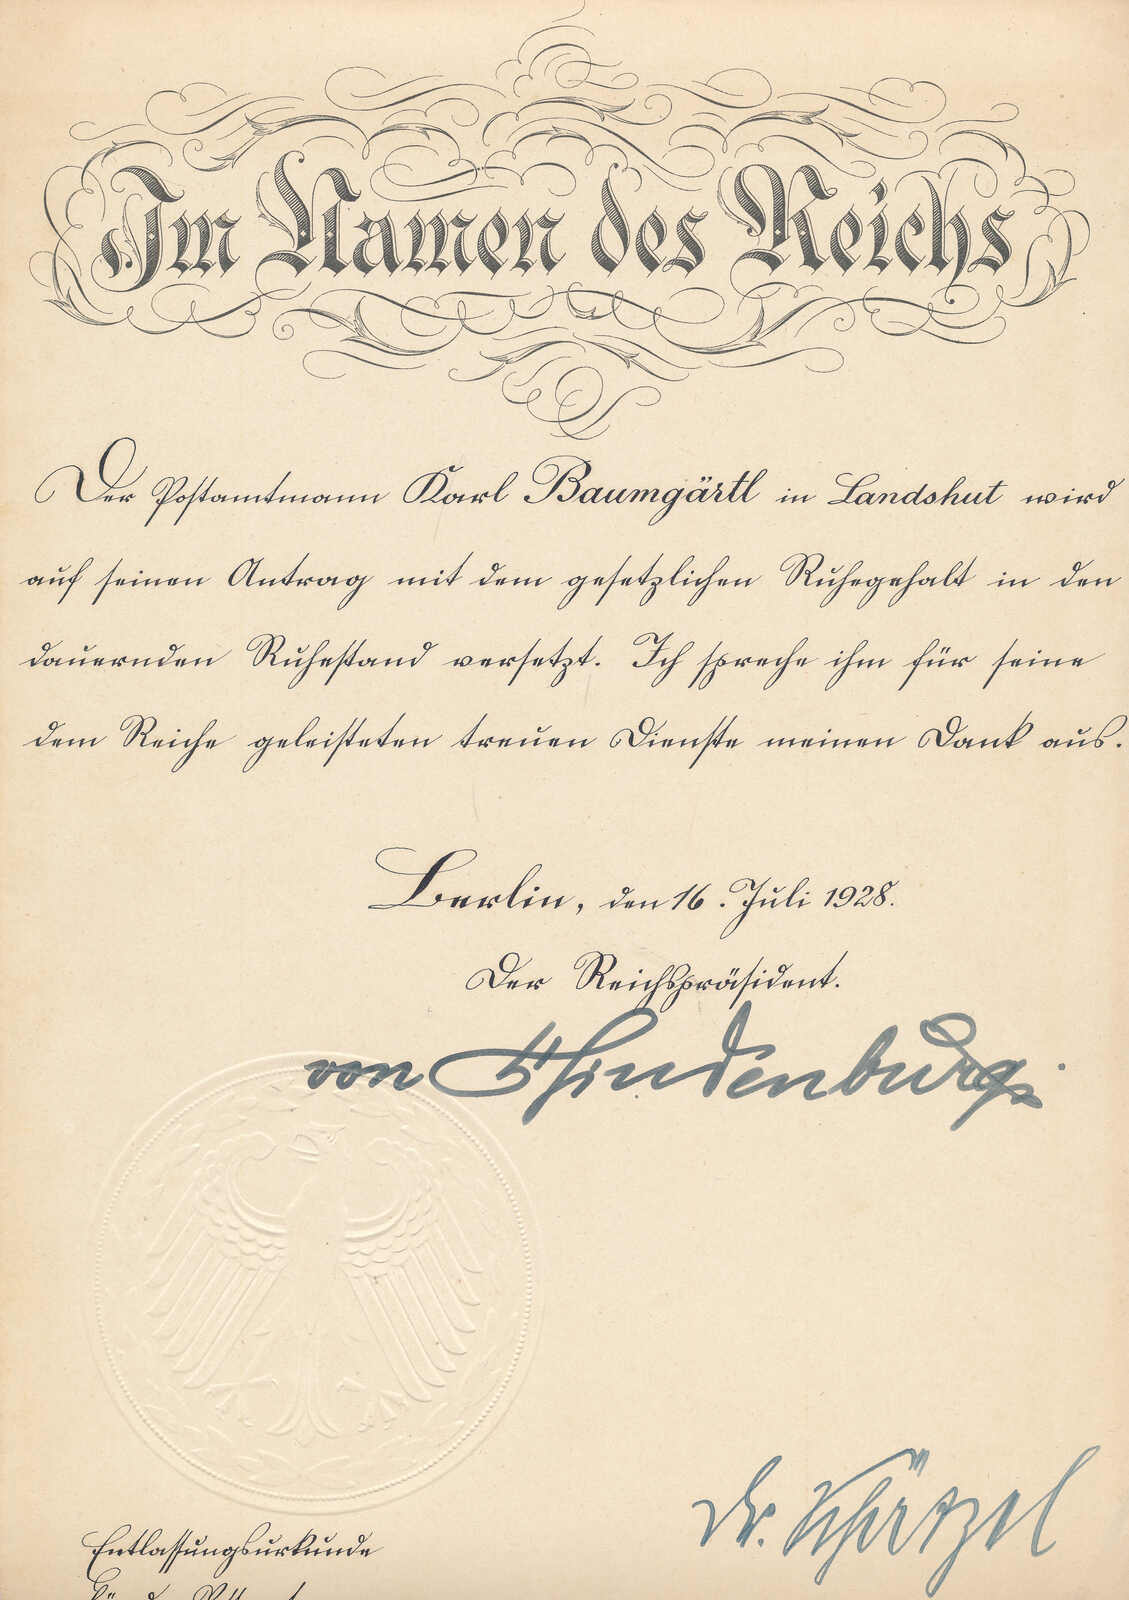 Im Namen des Reichs
Der Postamtmann Karl Baumgärtl in Landshut wird
auf seinen Antrag mit dem gesetzlichen Ruhegehalt in den
dauernden Ruhestand versetzt. Ich spreche ihm für seine
dem Reiche geleisteten treuen Dienste meinen Dank aus.
Berlin, den 16. Juli 1928.
Der Reichspräsident.
von Hindenburg
Dr. Schätzel
Entlassungsurkunde